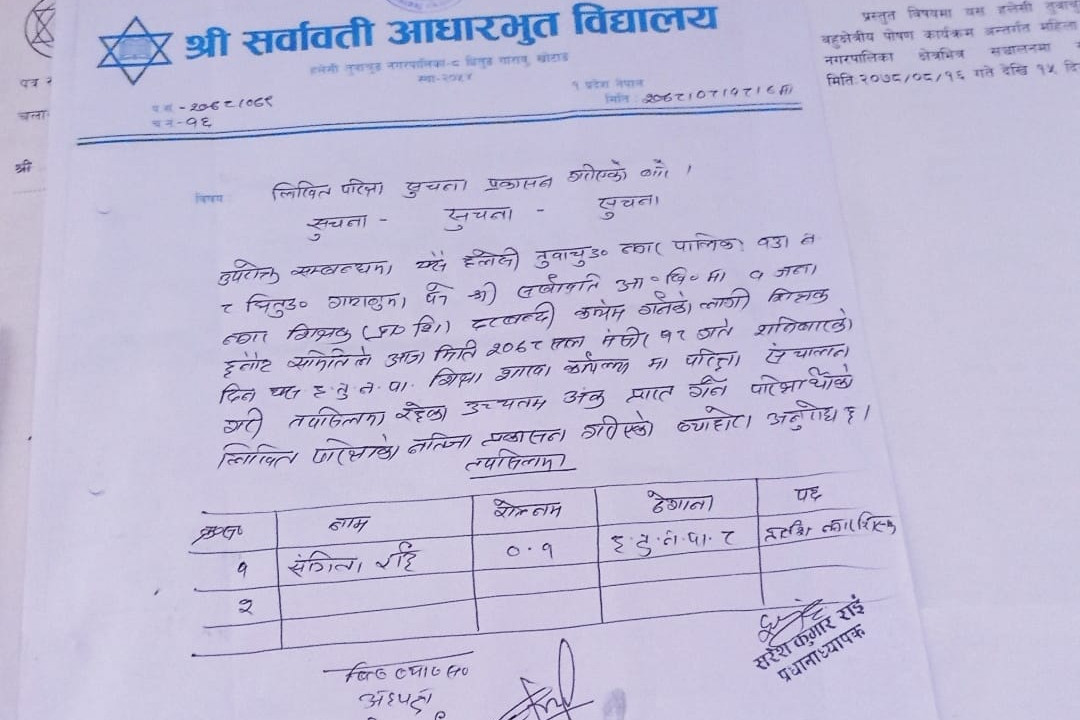 श्री सर्वावती आधारभुत विद्यालय
हलेसी तुवाचुङ नगरपालिका-८ चितुङ गागलु, खोटाङ
स्था-२०५४
१ प्रदेश नेपाल
प.स.-२०७८/०७९
मिति:
च.नं-१६
विषय लिखित परिक्षा सुचना प्रकासन गरिएको बारे ।
सुचना - सुचना - सुचना
उपरोक्त सम्बन्धमा यस हलेसी तुवाचुङ नगर पालिका वडा नं
आ॰वि॰मा १ जना
दरबन्दी कायम गर्नको लागी शिक्षक
छनौट समितिले आज मिति २०७८ साल मंसीर १८ गते शनिबारको
दिन यस ह.तु.न.पा. शिक्षा शाखा मा परिक्षा संचालन
गरी तपसिलमा रहेका उच्चतम अंक प्राप्त गर्ने
लिखित नतिजा प्रकासन गरिएको व्यहोरा अनुरोध छ।
तपसिलमा
नाम ठेगाना पद
१ संगिता राई ०.१ ह.तु.न.पा. ८
२
सुरेश कुमार राई
प्रधानाध्यापक
अध्यक्ष
पत्र
चला
श्री
प्रस्तुत विषयमा यस हलेसी तुवाचु
बहुक्षेत्रीय पोषण कार्यक्रम अन्तर्गत महिला
नगरपालिका क्षेत्रभित्र संचालनमा
मिति २०७८/०८/१६ गते देखि १५ दि